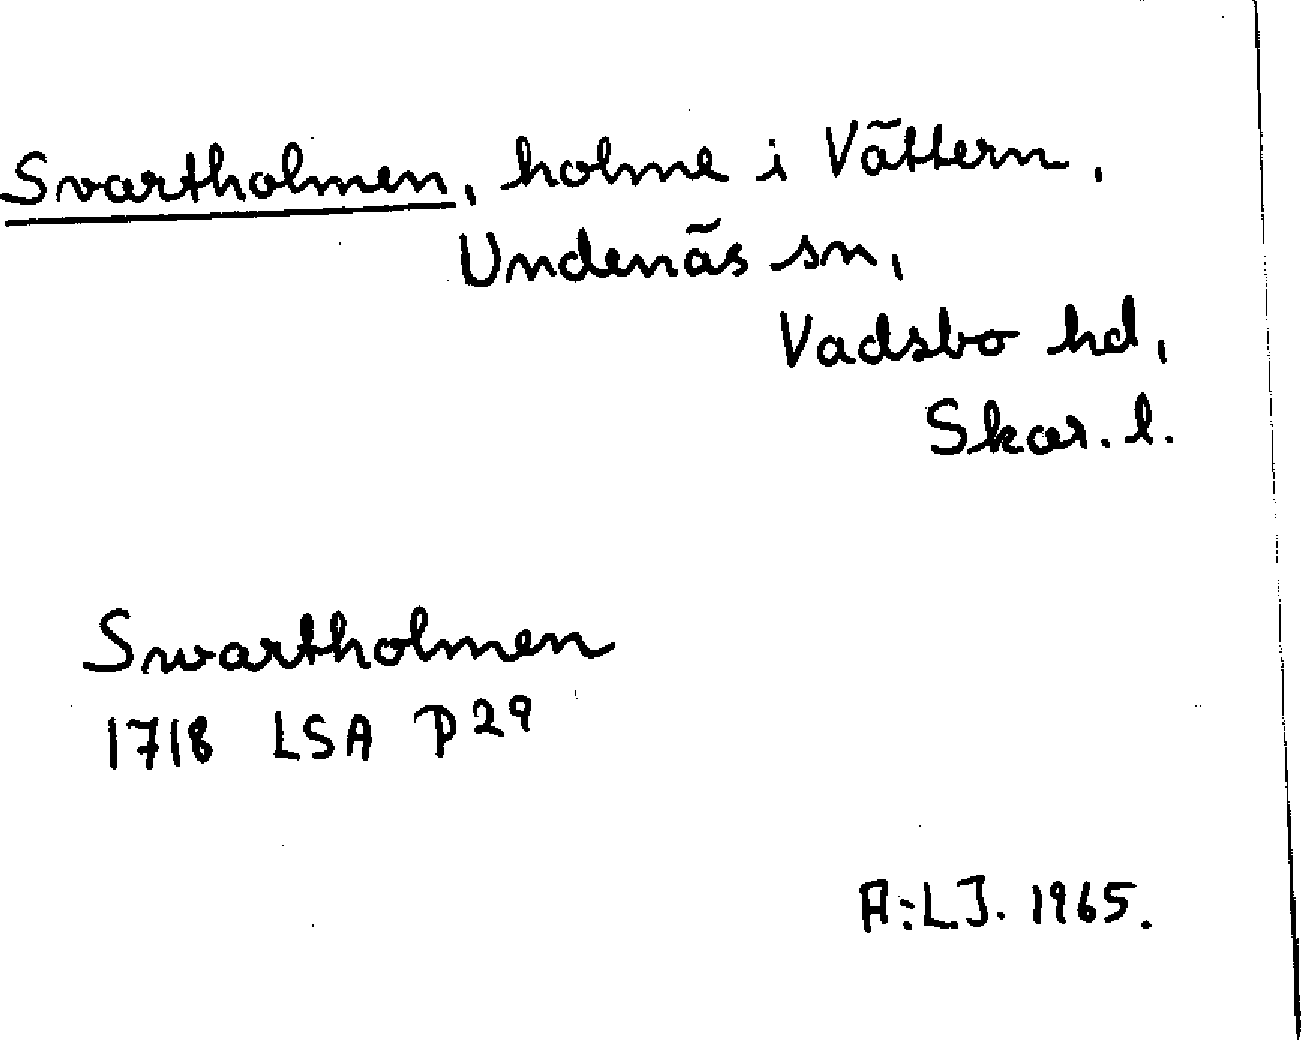 Svartholmen, holme i Vättern,
Undenäs sn,
Vadsbo hd,
Skar. l.
Swartholmen
1718 LSA P29
A:LJ. 1965.